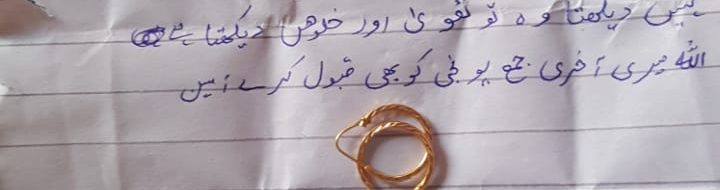 نہیں دیکھتا وہ تو تقویٰ اور خلوص دیکھتا ہے
اللہ میری آخری جمع پونجی کو بھی قبول کرے آمین